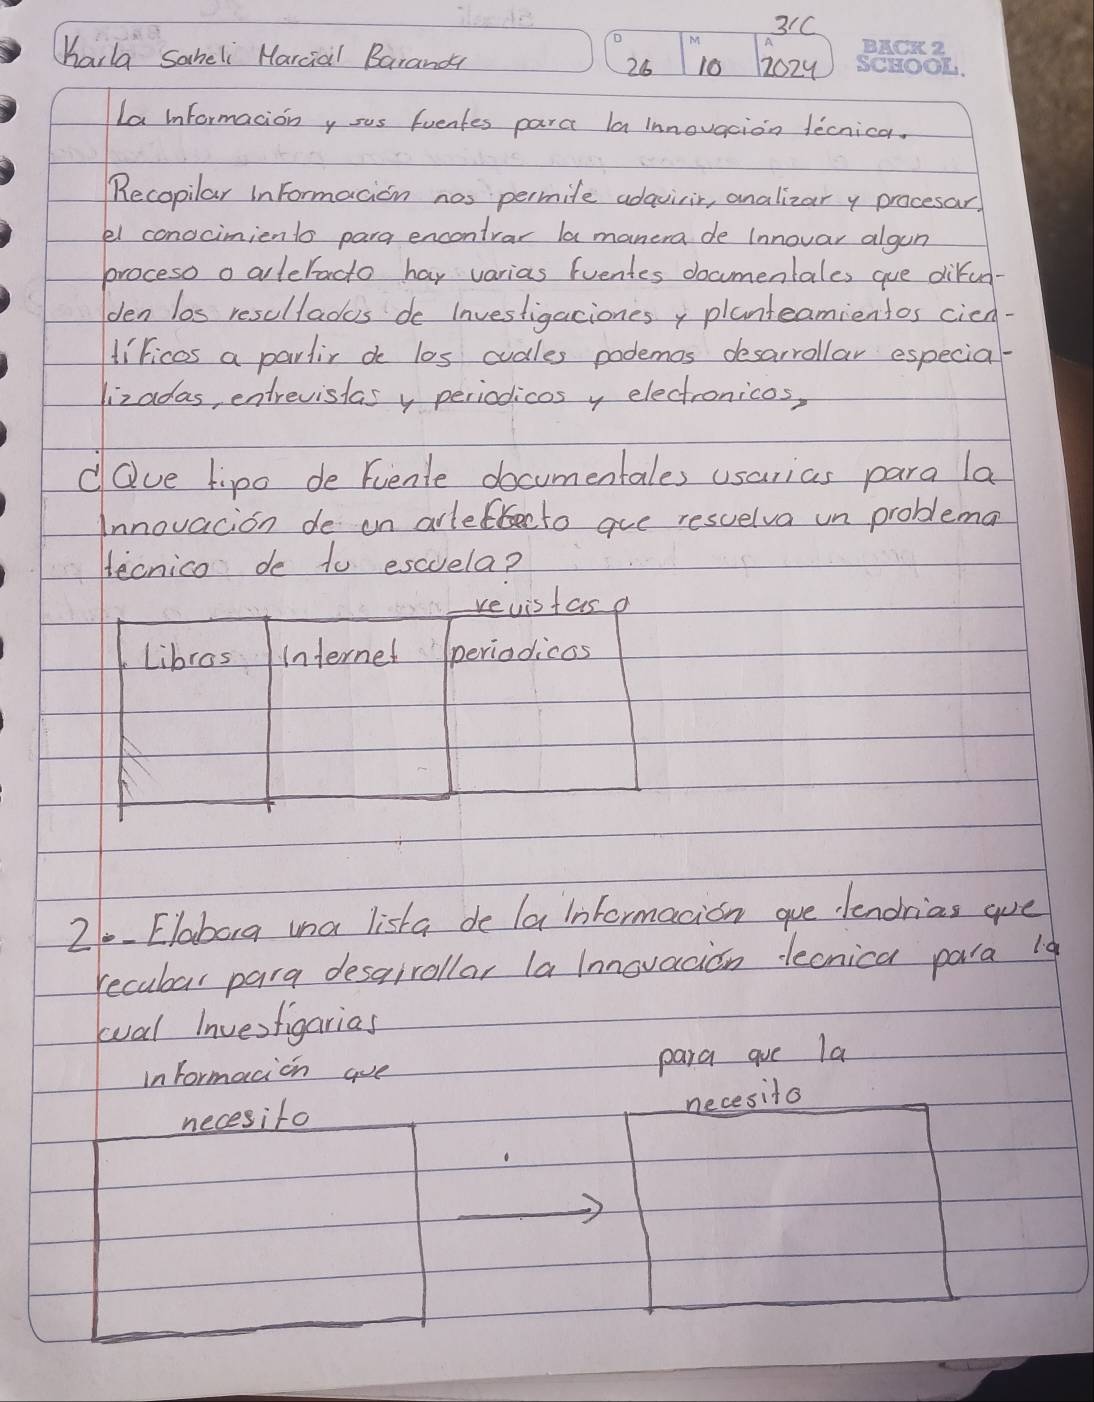 3°C
Karla Saheli Marcial Baranda
D 26 M 10 A 2024
BACK 2
SCHOOL.
La Información y sus fuentes para la Innovación técnica.
Recopilar Información nos permite adquirir, analizar y procesar
el conocimiento para encontrar la manera de Innovar algun
proceso o artefacto hay varias fuentes documentales que difun-
den los resultados de Investigaciones y planteamientos cien-
tíficos a partir de los cuales podemos desarrollar especia-
lizadas, entrevistas y periodicos y electronicos,
¿Que tipo de fuente documentales usarias para la
Innovación de un artefecto que resuelva un problema
técnico de tu escuela?
revistas o
Libros Internet periodicos
2.- Elabora una lista de la Información que tendrias que
recubar para desarrollar la Innovación tecnica para la
cual Investigarias
información que para que la
necesito necesito